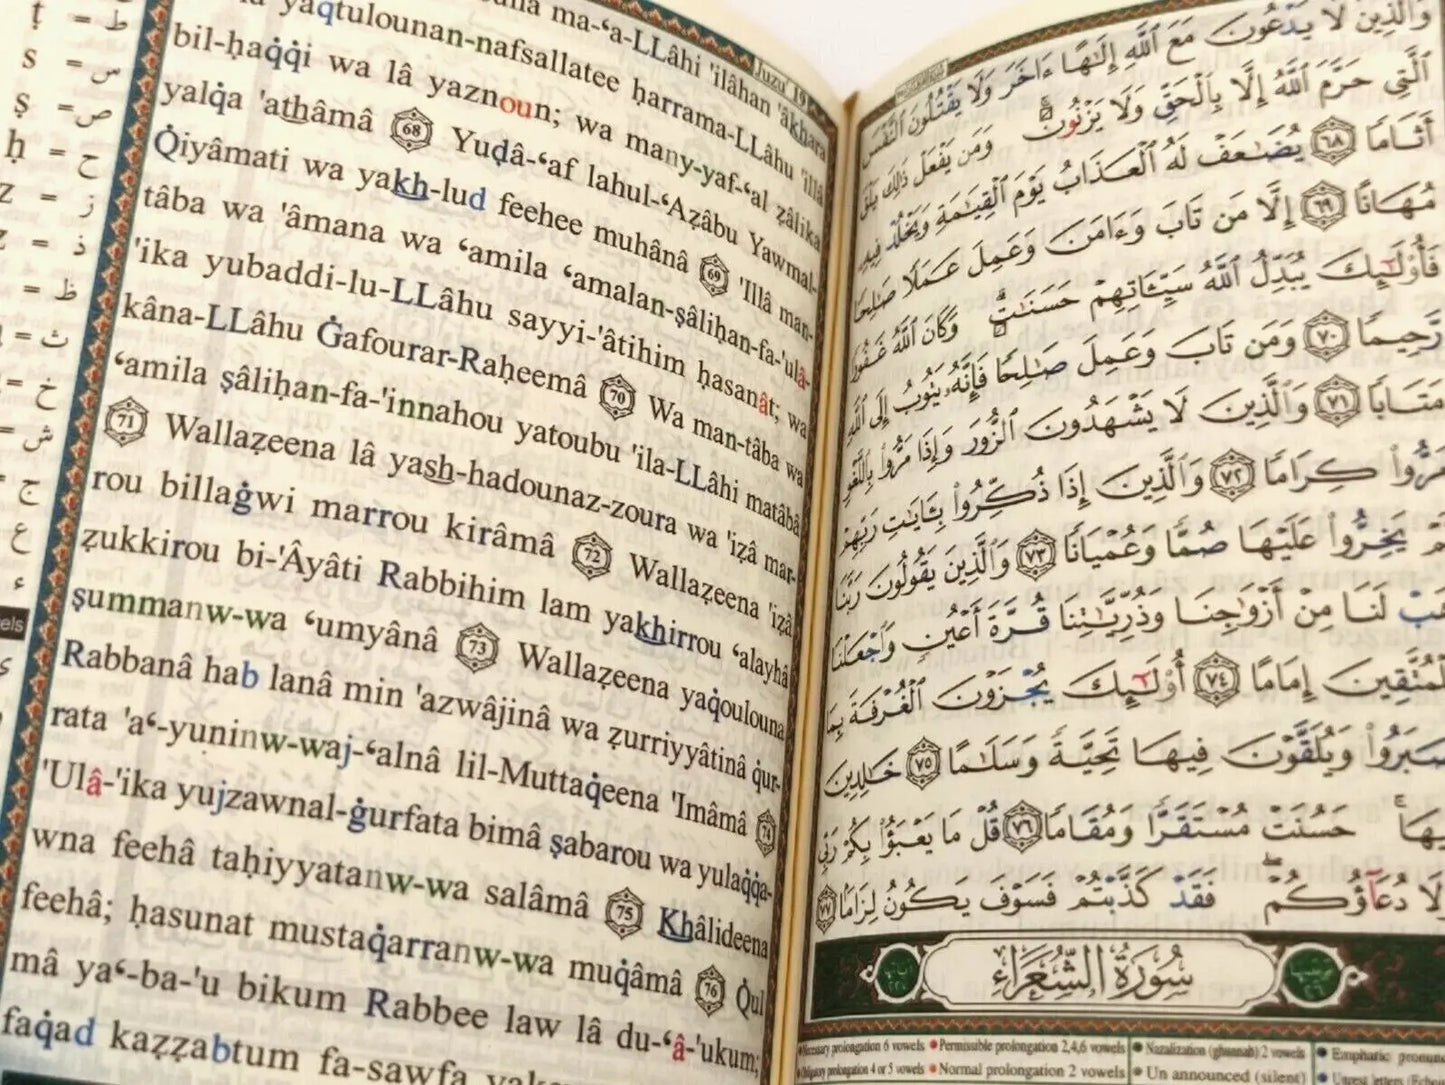 ṭ = ط
s = س
ṣ = ص
ḥ = ح
z = ز
= ذ
= ظ
= ث
= خ
= ش
= ج
ع
ء
Juzu' 19
ma-‘a-LLâhi 'ilâhan 'âkhara
yaqtulounan-nafsallatee ḥarrama-LLâhu 'illâ
bil-ḥaq̇q̇i wa lâ yaznoun; wa many-yaf-‘al ẓâlika
yalq̇a 'athâmâ 68 Yuḍâ-‘af lahul-‘Aẓâbu Yawmal-
Q̇iyâmati wa yakh-lud feehee muhânâ 69 'Illâ man-
tâba wa 'âmana wa ‘amila ‘amalan-ṣâliḥan-fa-'ulâ-
'ika yubaddi-lu-LLâhu sayyi-'âtihim ḥasanât; wa
kâna-LLâhu Ġafourar-Raḥeemâ 70 Wa man-tâba wa
‘amila ṣâliḥan-fa-'innahou yatoubu 'ila-LLâhi matâbâ
71 Wallaẓeena lâ yash-hadounaz-zoura wa 'iẓâ mar-
rou billaġwi marrou kirâmâ 72 Wallaẓeena 'iẓâ
ẓukkirou bi-'Âyâti Rabbihim lam yakhirrou ‘alayhâ
ṣummanw-wa ‘umyânâ 73 Wallaẓeena yaq̇oulouna
Rabbanâ hab lanâ min 'azwâjinâ wa ẓurriyyâtinâ q̇ur-
rata 'a‘-yuninw-waj-‘alnâ lil-Muttaq̇eena 'Imâmâ 74
'Ulâ-'ika yujzawnal-ġurfata bimâ ṣabarou wa yulaq̇q̇a-
wna feehâ taḥiyyatanw-wa salâmâ 75 Khâlideena
feehâ; ḥasunat mustaq̇arranw-wa muq̇âmâ 76 Q̇ul
mâ ya‘-ba-'u bikum Rabbee law lâ du-‘â-'ukum;
faq̇ad kaẓẓabtum fa-sawfa
وَالَّذِينَ لَا يَدْعُونَ مَعَ اللَّهِ إِلَٰهًا ءَاخَرَ وَلَا يَقْتُلُونَ النَّفْسَ
الَّتِي حَرَّمَ اللَّهُ إِلَّا بِالْحَقِّ وَلَا يَزْنُونَ ۚ وَمَن يَفْعَلْ ذَٰلِكَ يَلْقَ
أَثَامًا ٦٨ يُضَٰعَفْ لَهُ الْعَذَابُ يَوْمَ الْقِيَٰمَةِ وَيَخْلُدْ فِيهِ
مُهَانًا ٦٩ إِلَّا مَن تَابَ وَءَامَنَ وَعَمِلَ عَمَلًا صَٰلِحًا
فَأُوْلَٰٓئِكَ يُبَدِّلُ اللَّهُ سَيِّـَٔاتِهِمْ حَسَنَٰتٍ ۗ وَكَانَ اللَّهُ غَفُورًا
رَّحِيمًا ٧٠ وَمَن تَابَ وَعَمِلَ صَٰلِحًا فَإِنَّهُۥ يَتُوبُ إِلَى اللَّهِ
مَتَابًا ٧١ وَالَّذِينَ لَا يَشْهَدُونَ الزُّورَ وَإِذَا مَرُّواْ بِاللَّغْوِ
مَرُّواْ كِرَامًا ٧٢ وَالَّذِينَ إِذَا ذُكِّرُواْ بِـَٔايَٰتِ رَبِّهِمْ
يَخِرُّواْ عَلَيْهَا صُمًّا وَعُمْيَانًا ٧٣ وَالَّذِينَ يَقُولُونَ رَبَّنَا
هَبْ لَنَا مِنْ أَزْوَٰجِنَا وَذُرِّيَّٰتِنَا قُرَّةَ أَعْيُنٍ وَاجْعَلْنَا
لِلْمُتَّقِينَ إِمَامًا ٧٤ أُوْلَٰٓئِكَ يُجْزَوْنَ الْغُرْفَةَ بِمَا
صَبَرُواْ وَيُلَقَّوْنَ فِيهَا تَحِيَّةً وَسَلَٰمًا ٧٥ خَٰلِدِينَ
فِيهَا ۚ حَسُنَتْ مُسْتَقَرًّا وَمُقَامًا ٧٦ قُلْ مَا يَعْبَؤُاْ بِكُمْ رَبِّي
لَوْلَا دُعَآؤُكُمْ ۖ فَقَدْ كَذَّبْتُمْ فَسَوْفَ يَكُونُ لِزَامًا ٧٧
سُورَةُ الشُّعَرَاءِ
Necessary prolongation 6 vowels Permissible prolongation 2,4,6 vowels Nazalization (ghunnah) 2 vowels Emphatic
Obligatory prolongation 4 or 5 vowels Normal prolongation 2 vowels Un announced (silent) Unrest letters